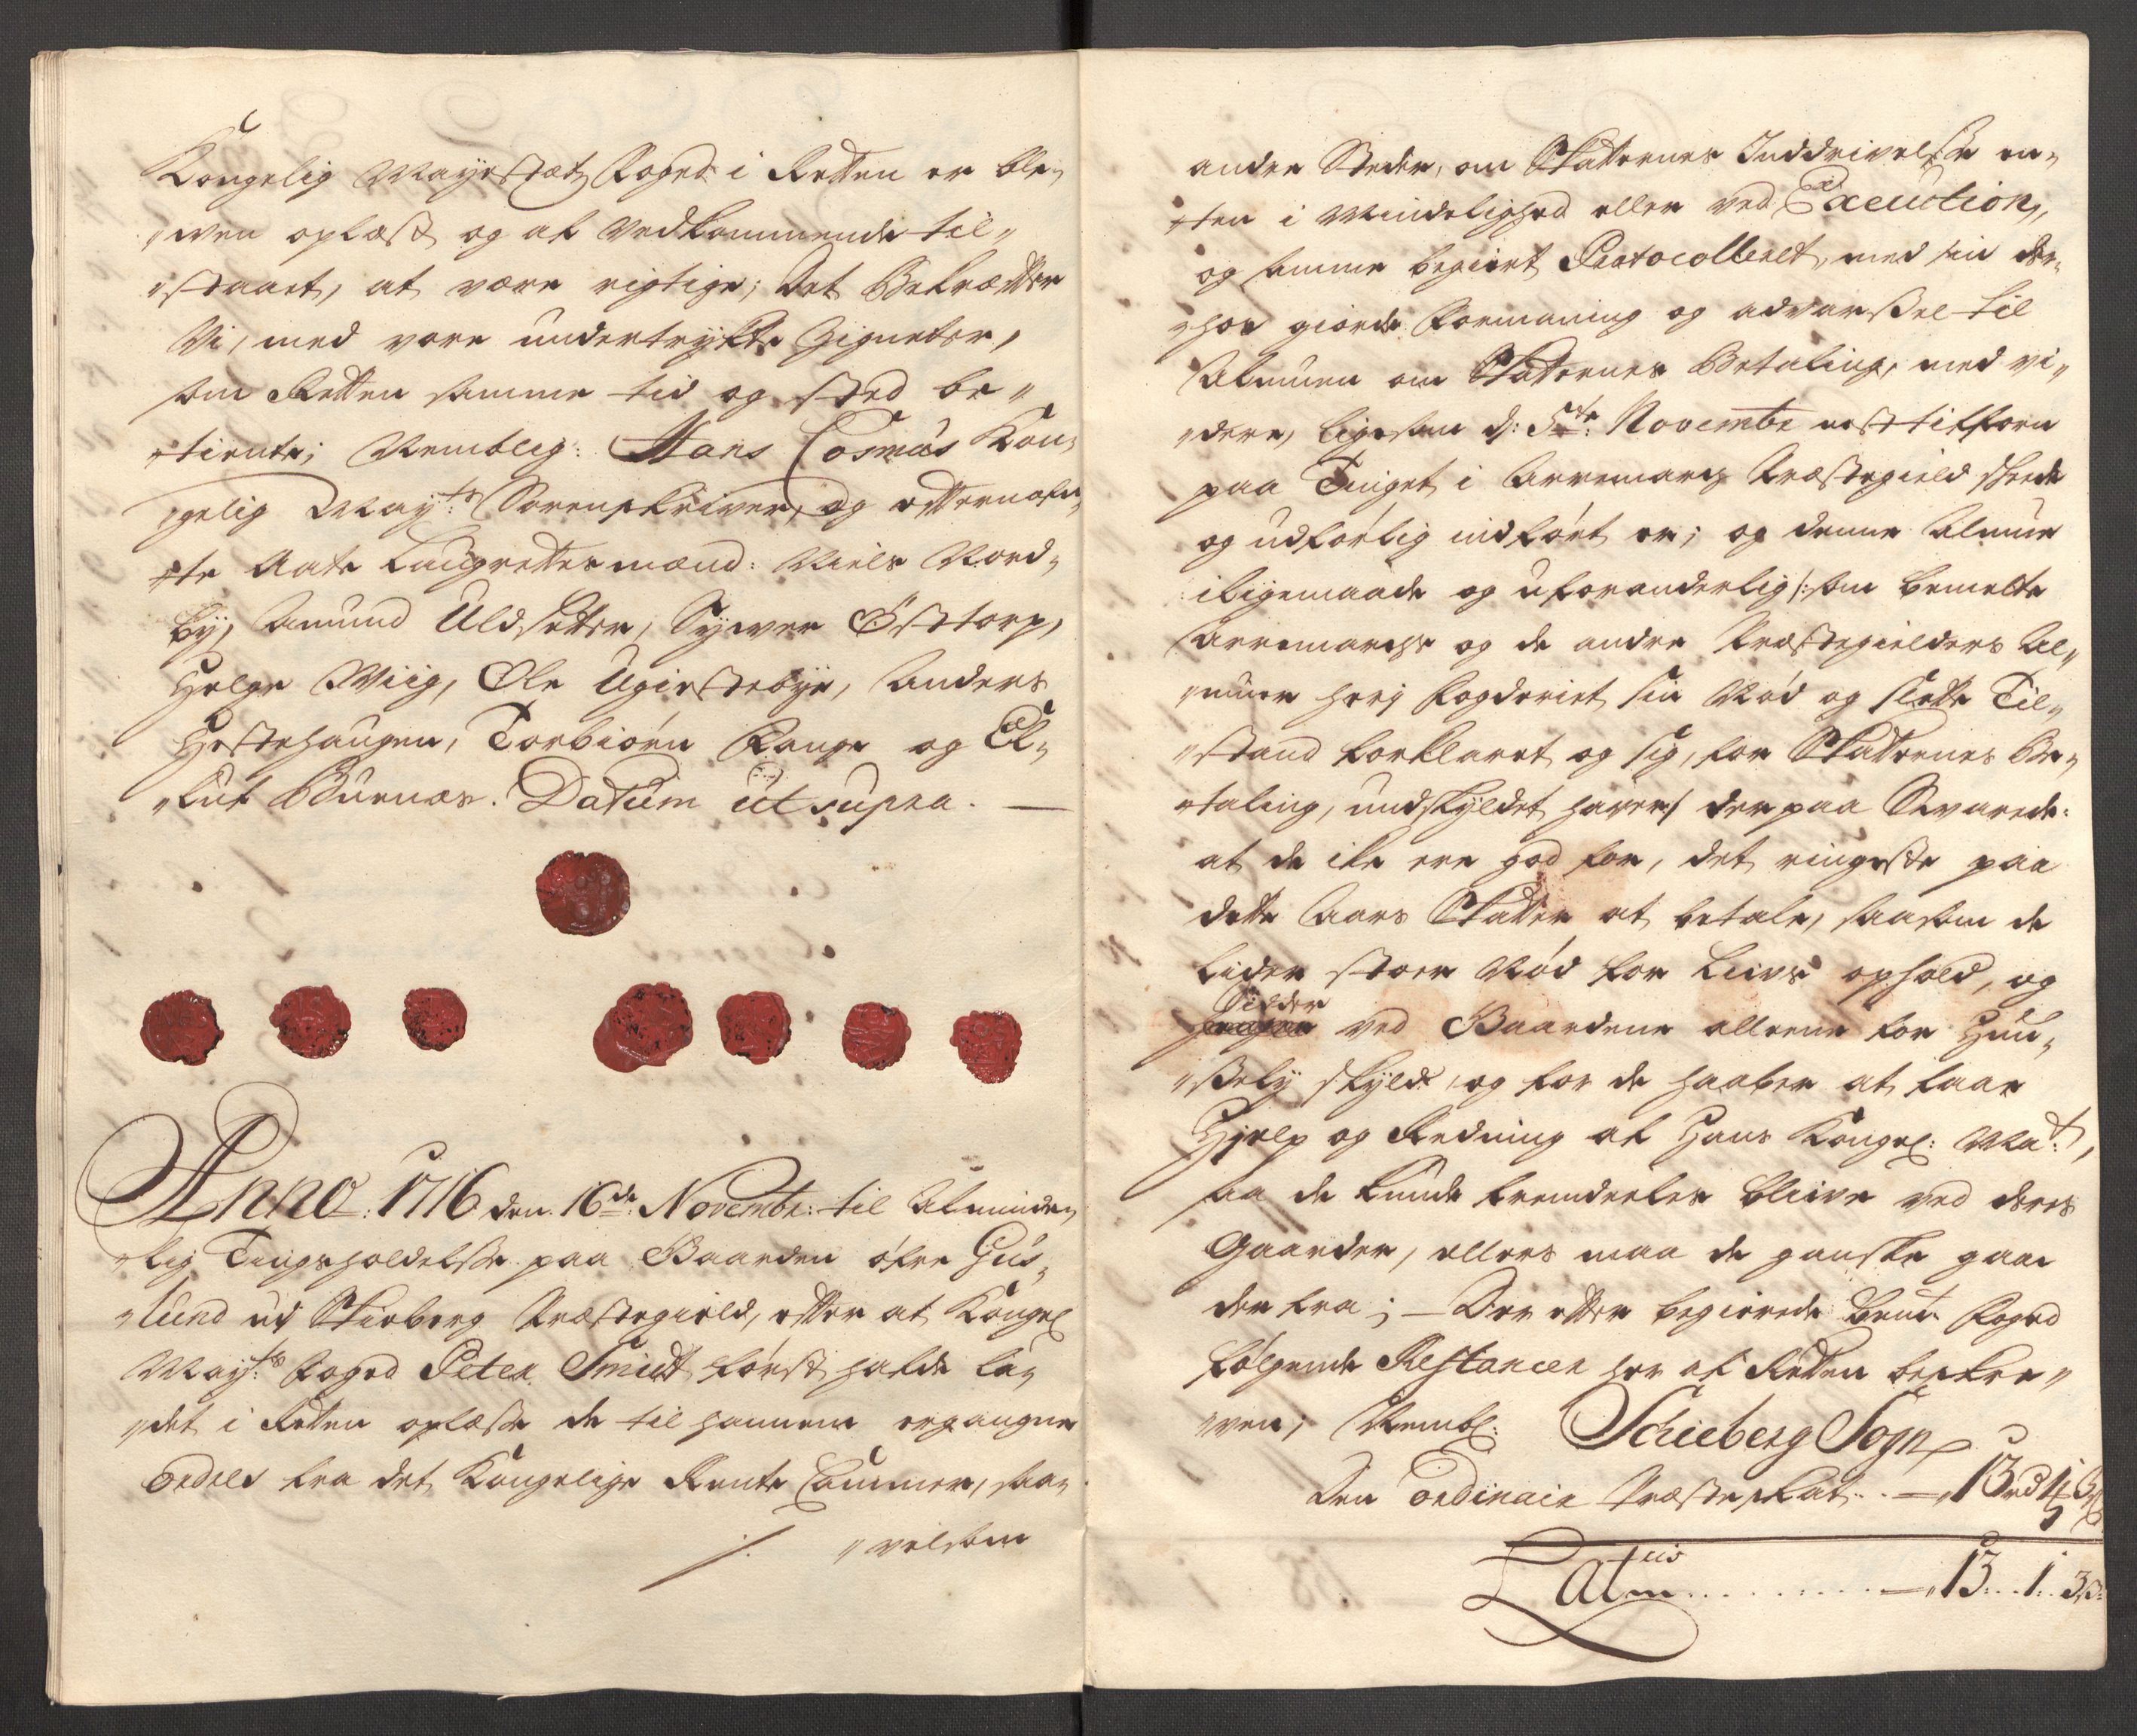 Kongelig Mayestæt Foged i Retten er ble„
„wen oplæst og af Vedkommende til„
„staaet, at være rigtige; Det Bekræfter
Vi, med vore undertrykte Zigneter,
som Retten samme tid og sted be„
„tiente; Nemblig: Hans Cosmus Kon„
„gelig May:ts Sorenskriver, og efternefn„
„te Aate Laugrettesmænd: Niels Nord„
by, Amund Uldsetter, Sywer Østtorp,
Helge Wiig, Ole Ugiestebye, Anders
Hestehaugen, Torbiørn Hauge og El„
„luf Buenæs. Datum ut supra. —
Anno: 1716 den 16de Novembr: til Alminde„
„lig Tingsholdelse paa Gaarden øfre Gus„
„lund ud Skieberg Præstegield, efter at Kongel
May:ts Foged Peter Smidt først hafde la„
„det i Retten oplæse de til hannem ergangne
Ordels fra det Kongelige Rente Cammer, saa„
./. „welsom
andre Steder, om Skatternes Inddrivelse en„
„ten i Mindelighed eller ved Execution,
og samme begiert Protocolleret, med sin der„
„hos giorde Formaning og advarsel til
Almuen om Skatternes Betaling, med vi„
„dere, ligesom d: 5te Novembr nest tilforn
paa Tinget i Arremarks Præstegield skeede
og udførlig indført er; og denne Almue
iligemaade og uforanderlig /: som bemelte
Arremarchs og de andre Præstegielders Al„
„muer her i Fogderiet sin Nød og slette Til„
„stand forklaret og sig, for Skatternes Be„
„taling, undskyldet haver/ der paa Svarede:
at de ike ere god for, det ringeste paa
dette Aars Skatter at betale, saasom de
lider stoer Nød for Livs ophold, og
Sidder
ved Gaardene alleene for Huu„
„sely skyld, og for de haaber at faae
Hielp og Redning af Hans Kongel: Ma:t,
saa de kunde fremdeeles blive ved deres
Gaarder, ellers maa de ganske gaae
der fra; — Der efter begierede bemte Foged
følgende Restancer her af Retten beskre„
„wen; Nembl: Schieberg Sogn
Den Ordinair Præsteskat.. — 13 rd 1 3 s
Latuis ......... — 13.. 1.. 3 s: